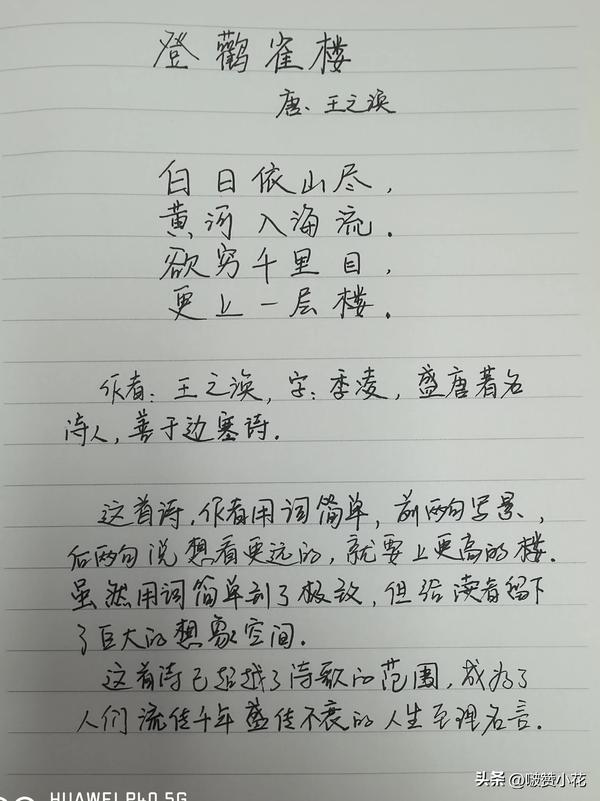 登鸛雀楼
唐、王之涣
白日依山尽，
黄河入海流．
欲穷千里目，
更上一层楼．
作者：王之涣，字：季凌，盛唐著名
诗人，善于边塞诗．
这首诗，作者用词简单，前两句写景、
后两句说想看更远的，就要上更高的楼．
虽然用词简单到了极致，但给读者留下
了巨大的想象空间．
这首诗已超越了诗歌的范围，成为了
人们流传千年盛传不衰的人生至理名言．
HUAWEI P40 5G
头条 @啵赞小花